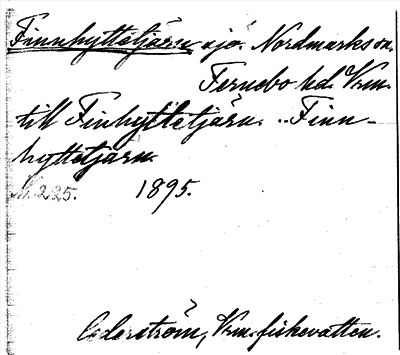 Finnhyttetjärn sjö. Nordmarks sn.
Fernebo hd. Vrm.
till Finhyttetjärn. "Finn-
hyttetjärn.
N. 225. 1895.
Cederström, Vrm. fiskevatten.